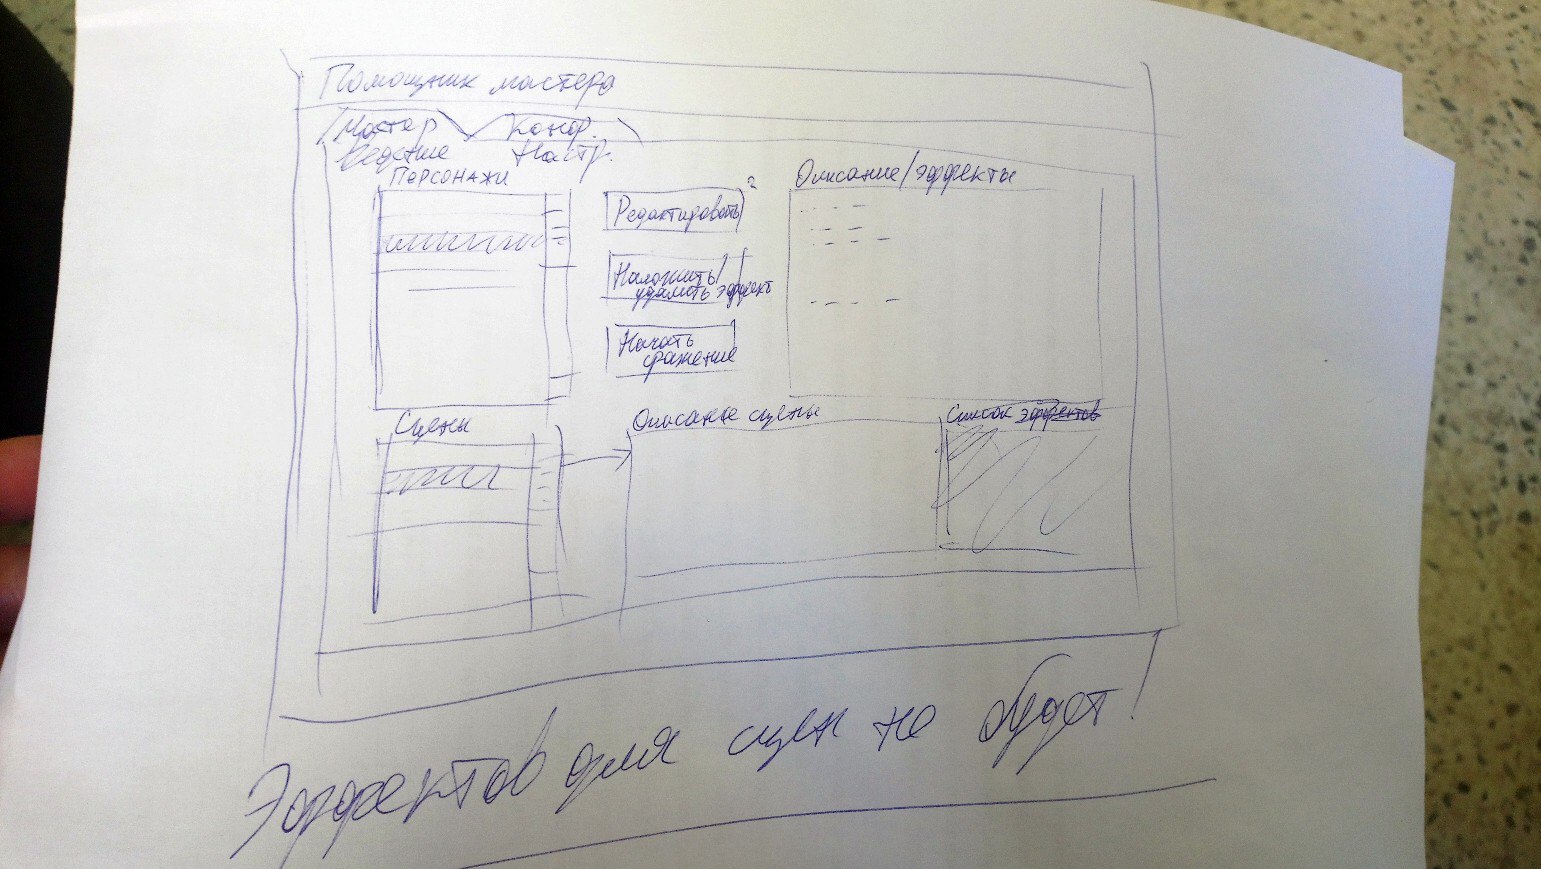 Помощник мастера
Мастер
Ведение
Конф.
Настр.
Персонажи
Редактировать
Наложить/
удалить эффект
Начать
сражение
Описание/эффекты
Сцены
Описание сцены
Список эффектов
Эффектов для сцен не будет!